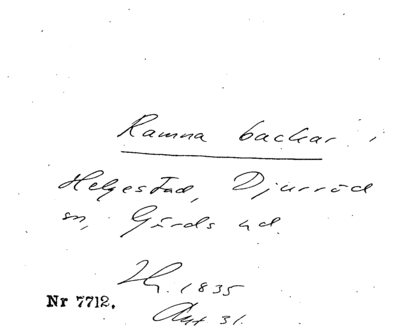 Ramna backar i
Helgestad, Djurröd
sn, Gärds hd.
1835
Nr 7712. Akt 31.